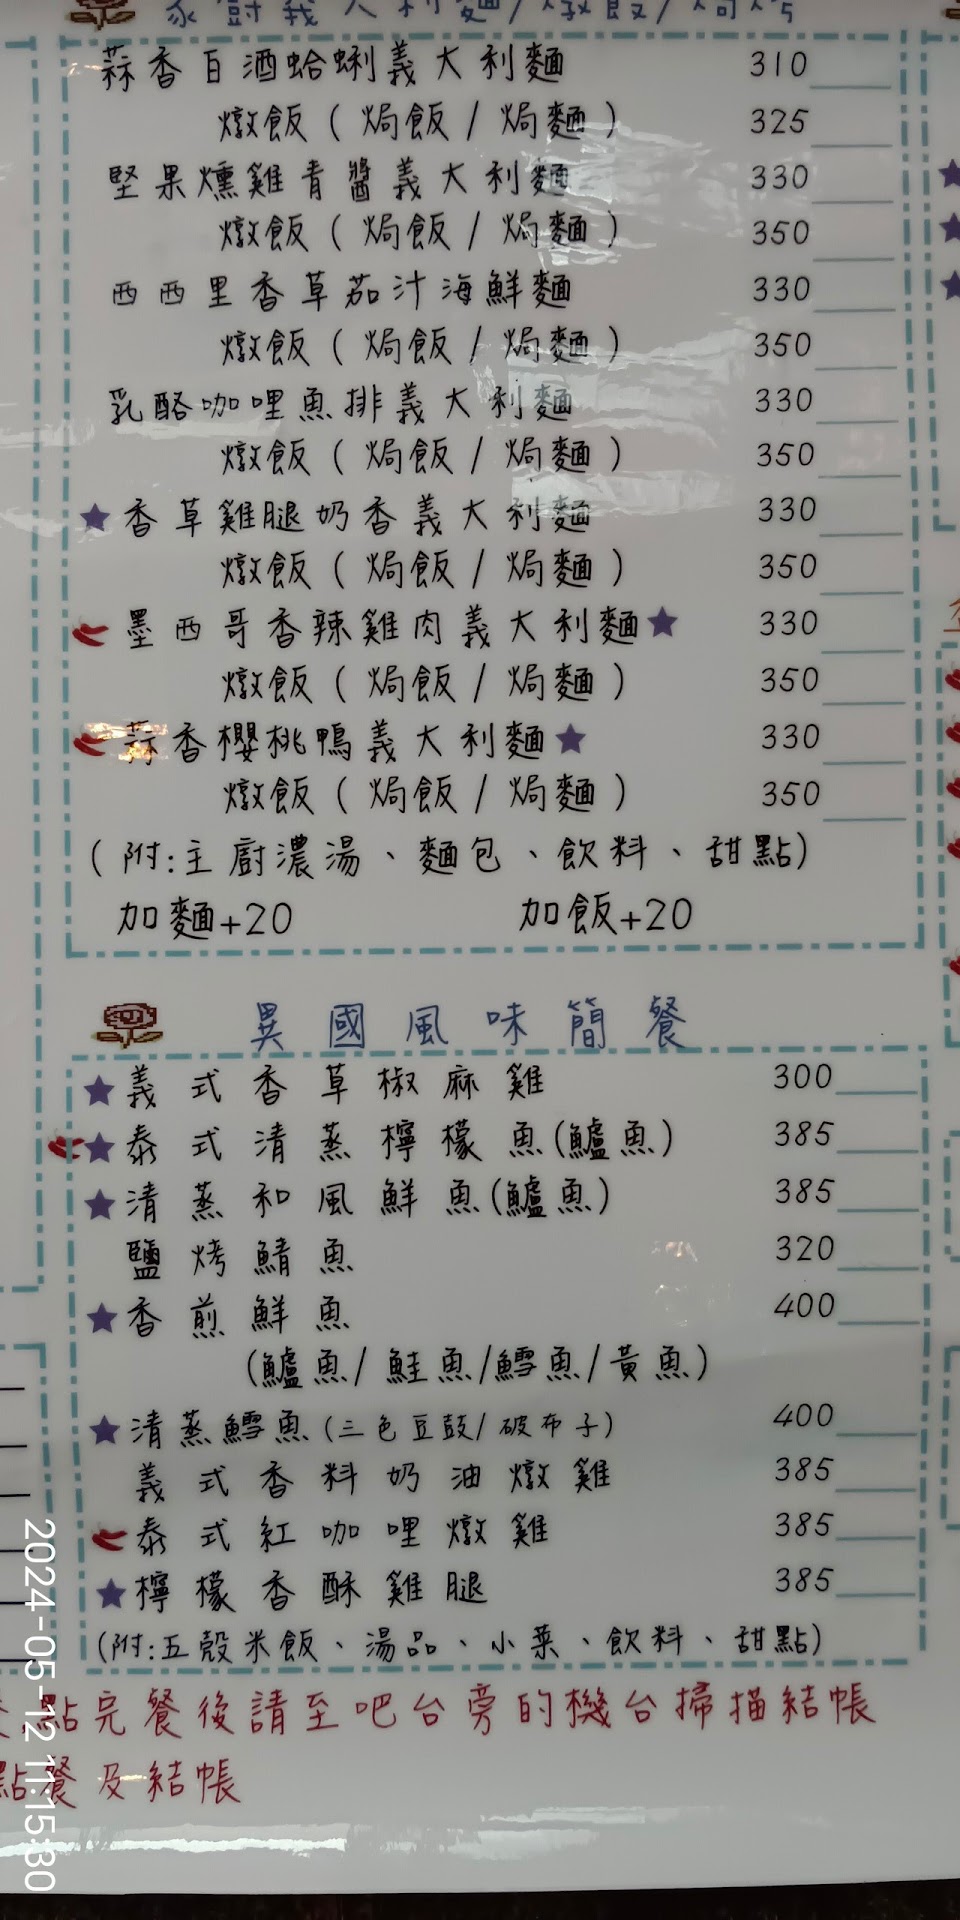 蒜香白酒蛤蜊義大利麵 310
燉飯(焗飯/焗麵) 325
堅果燻雞青醬義大利麵 330
燉飯(焗飯/焗麵) 350
西西里香草茄汁海鮮麵 330
燉飯(焗飯/焗麵) 350
乳酪咖哩魚排義大利麵 330
燉飯(焗飯/焗麵) 350
★香草雞腿奶香義大利麵 330
燉飯(焗飯/焗麵) 350
墨西哥香辣雞肉義大利麵★ 330
燉飯(焗飯/焗麵) 350
蒜香櫻桃鴨義大利麵★ 330
燉飯(焗飯/焗麵) 350
(附:主廚濃湯、麵包、飲料、甜點)
加麵+20 加飯+20
異國風味簡餐
★義式香草椒麻雞 300
★泰式清蒸檸檬魚(鱸魚) 385
★清蒸和風鮮魚(鱸魚) 385
鹽烤鯖魚 320
★香煎鮮魚 400
(鱸魚/鮭魚/鱈魚/黃魚)
★清蒸鱈魚(三色豆鼓/破布子) 400
義式香料奶油燉雞 385
泰式紅咖哩燉雞 385
★檸檬香酥雞腿 385
(附:五殼米飯、湯品、小菜、飲料、甜點)
點完餐後請至吧台旁的機台掃描結帳
點餐及結帳
2024-05-12 11:15:30